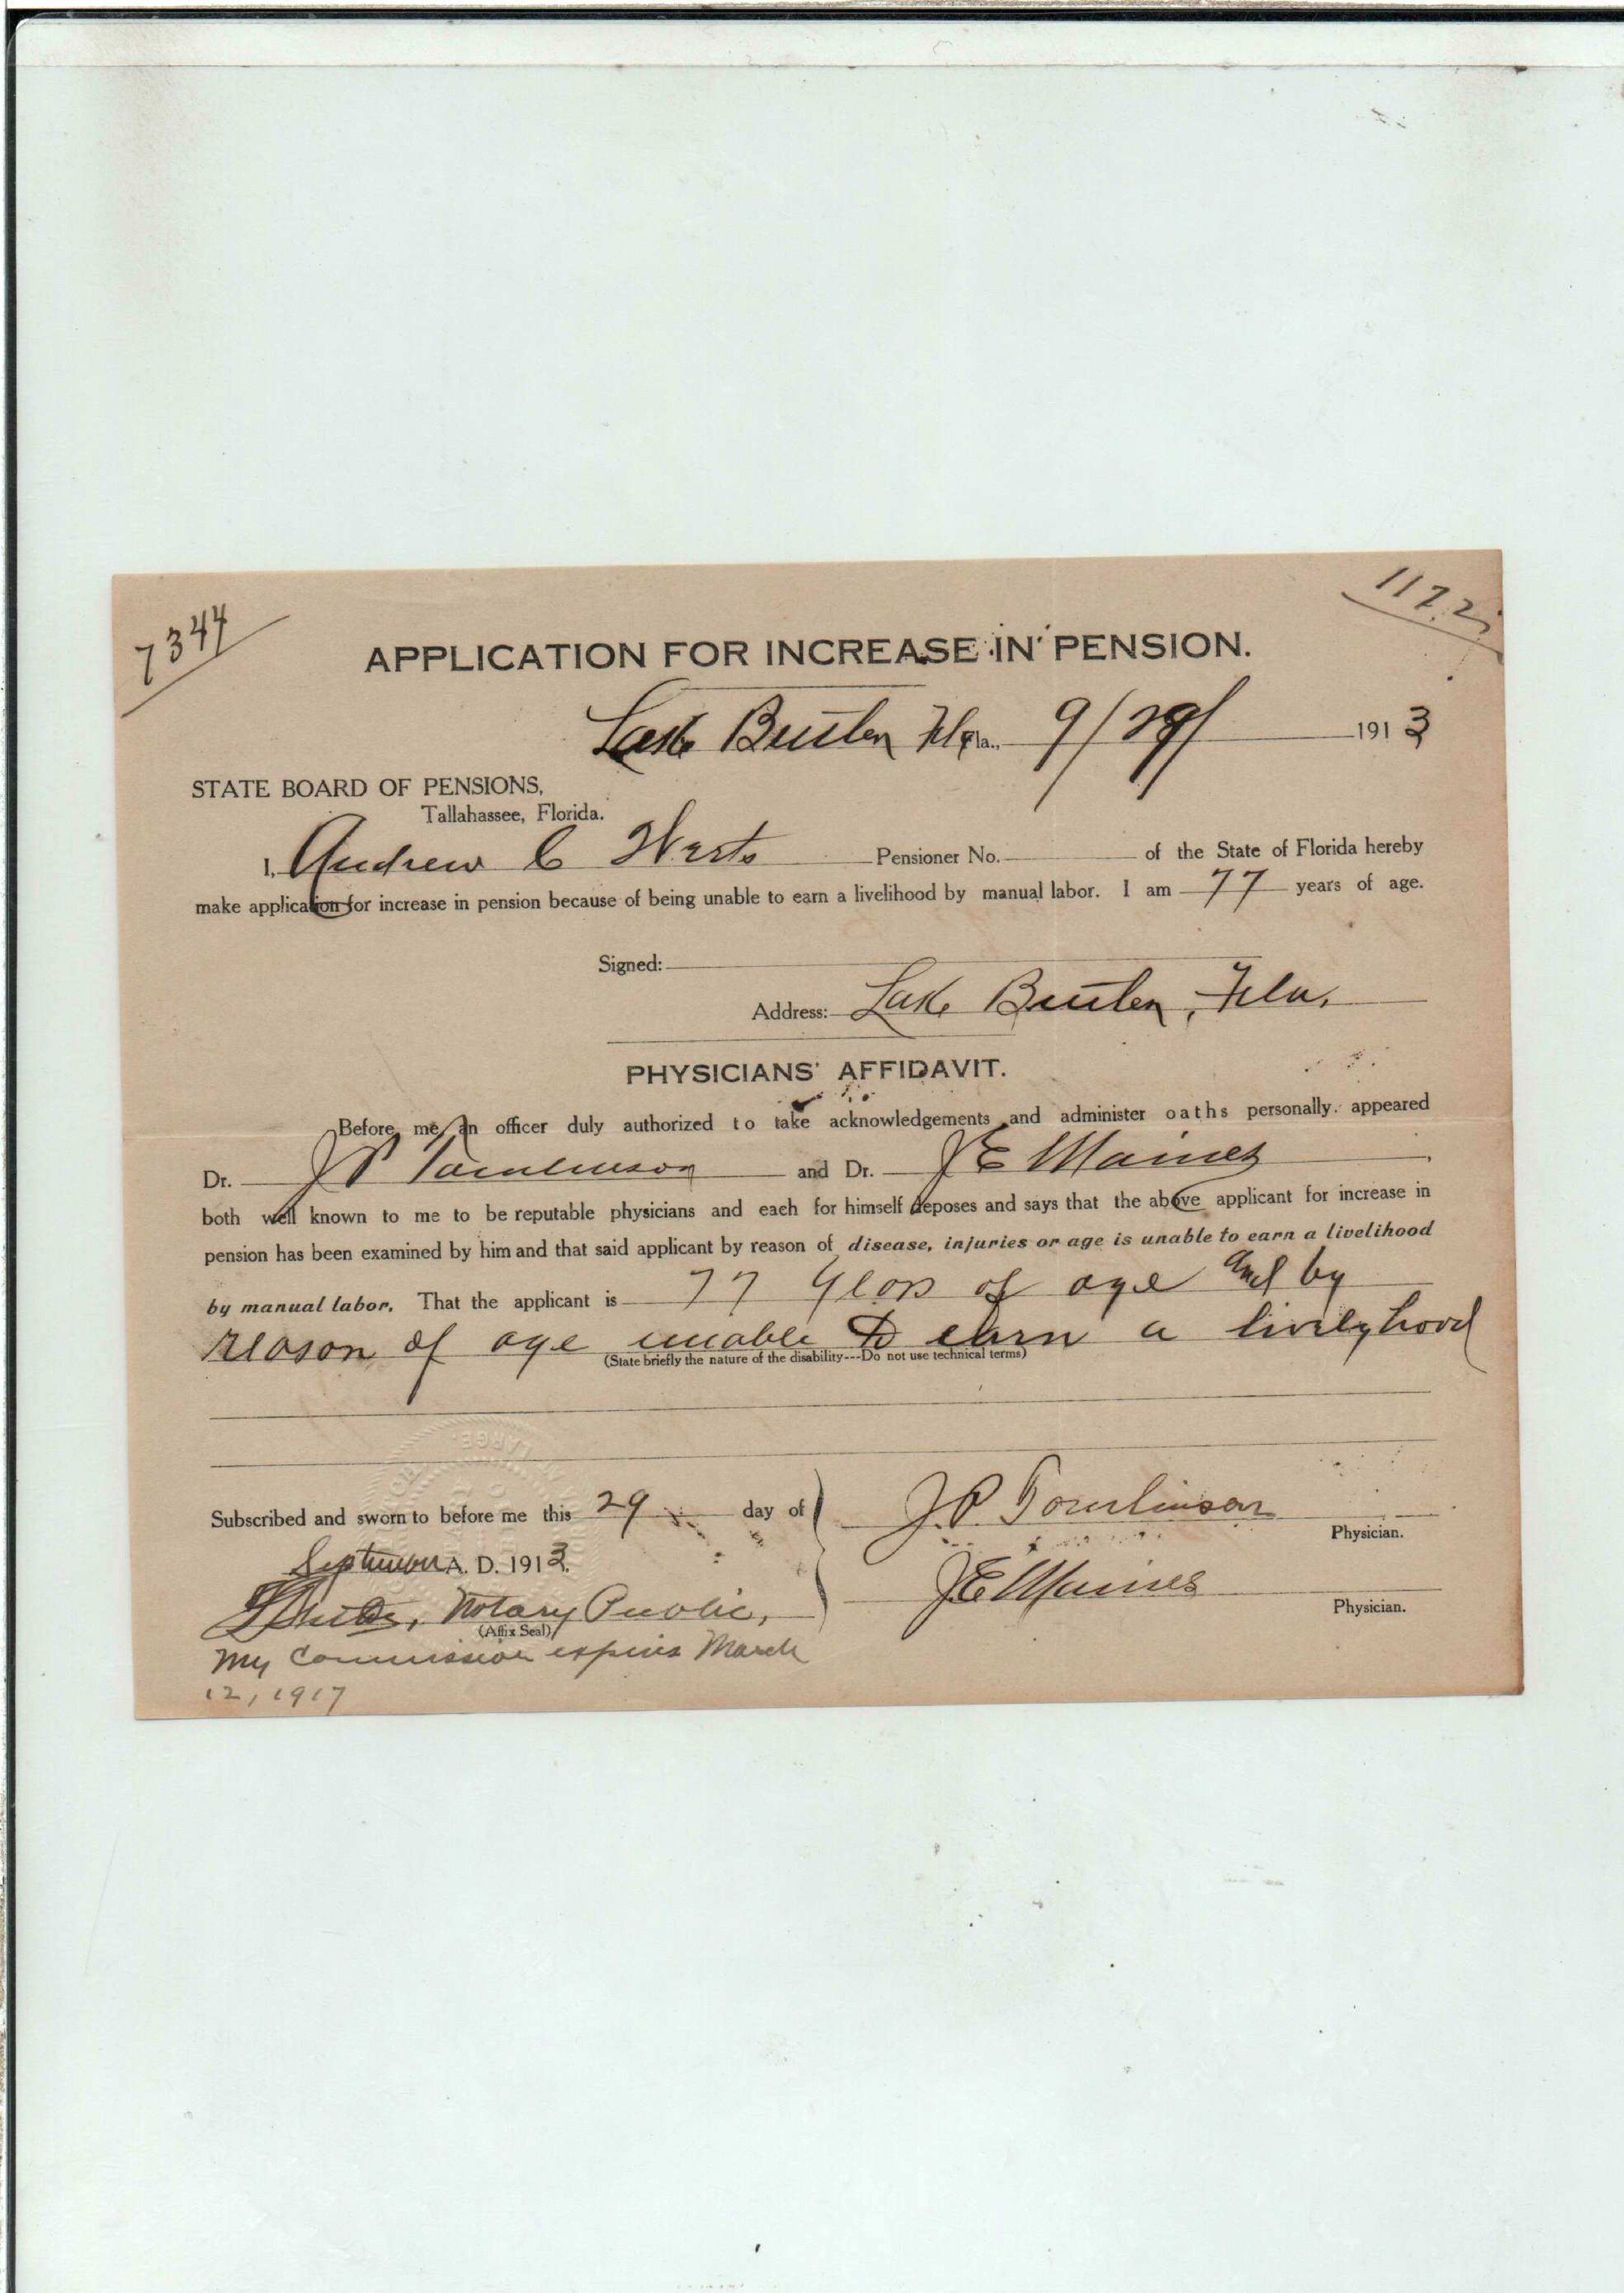 7344
1122
APPLICATION FOR INCREASE IN PENSION.
Lake Butler Fla Fla., 9/29/ 1913
STATE BOARD OF PENSIONS,
Tallahassee, Florida.
I, Andrew C Werts Pensioner No. of the State of Florida hereby
make application for increase in pension because of being unable to earn a livelihood by manual labor. I am 77 years of age.
Signed:
Address: Lake Butler, Fla.
PHYSICIANS' AFFIDAVIT.
Before me, an officer duly authorized to take acknowledgements and administer oaths personally appeared
Dr. J P Tomlinson and Dr. J E Maines
both well known to me to be reputable physicians and each for himself deposes and says that the above applicant for increase in
pension has been examined by him and that said applicant by reason of disease, injuries or age is unable to earn a livelihood
by manual labor. That the applicant is 77 years of age and by
reason of age unable to earn a livelyhood
(State briefly the nature of the disability---Do not use technical terms)
LARGE
Subscribed and sworn to before me this 29 day of J.P. Tomlinson
Physician.
September A. D. 1913.
J E Maines
Physician.
Notary Public,
(Affix Seal)
My Commission expires March
12, 1917